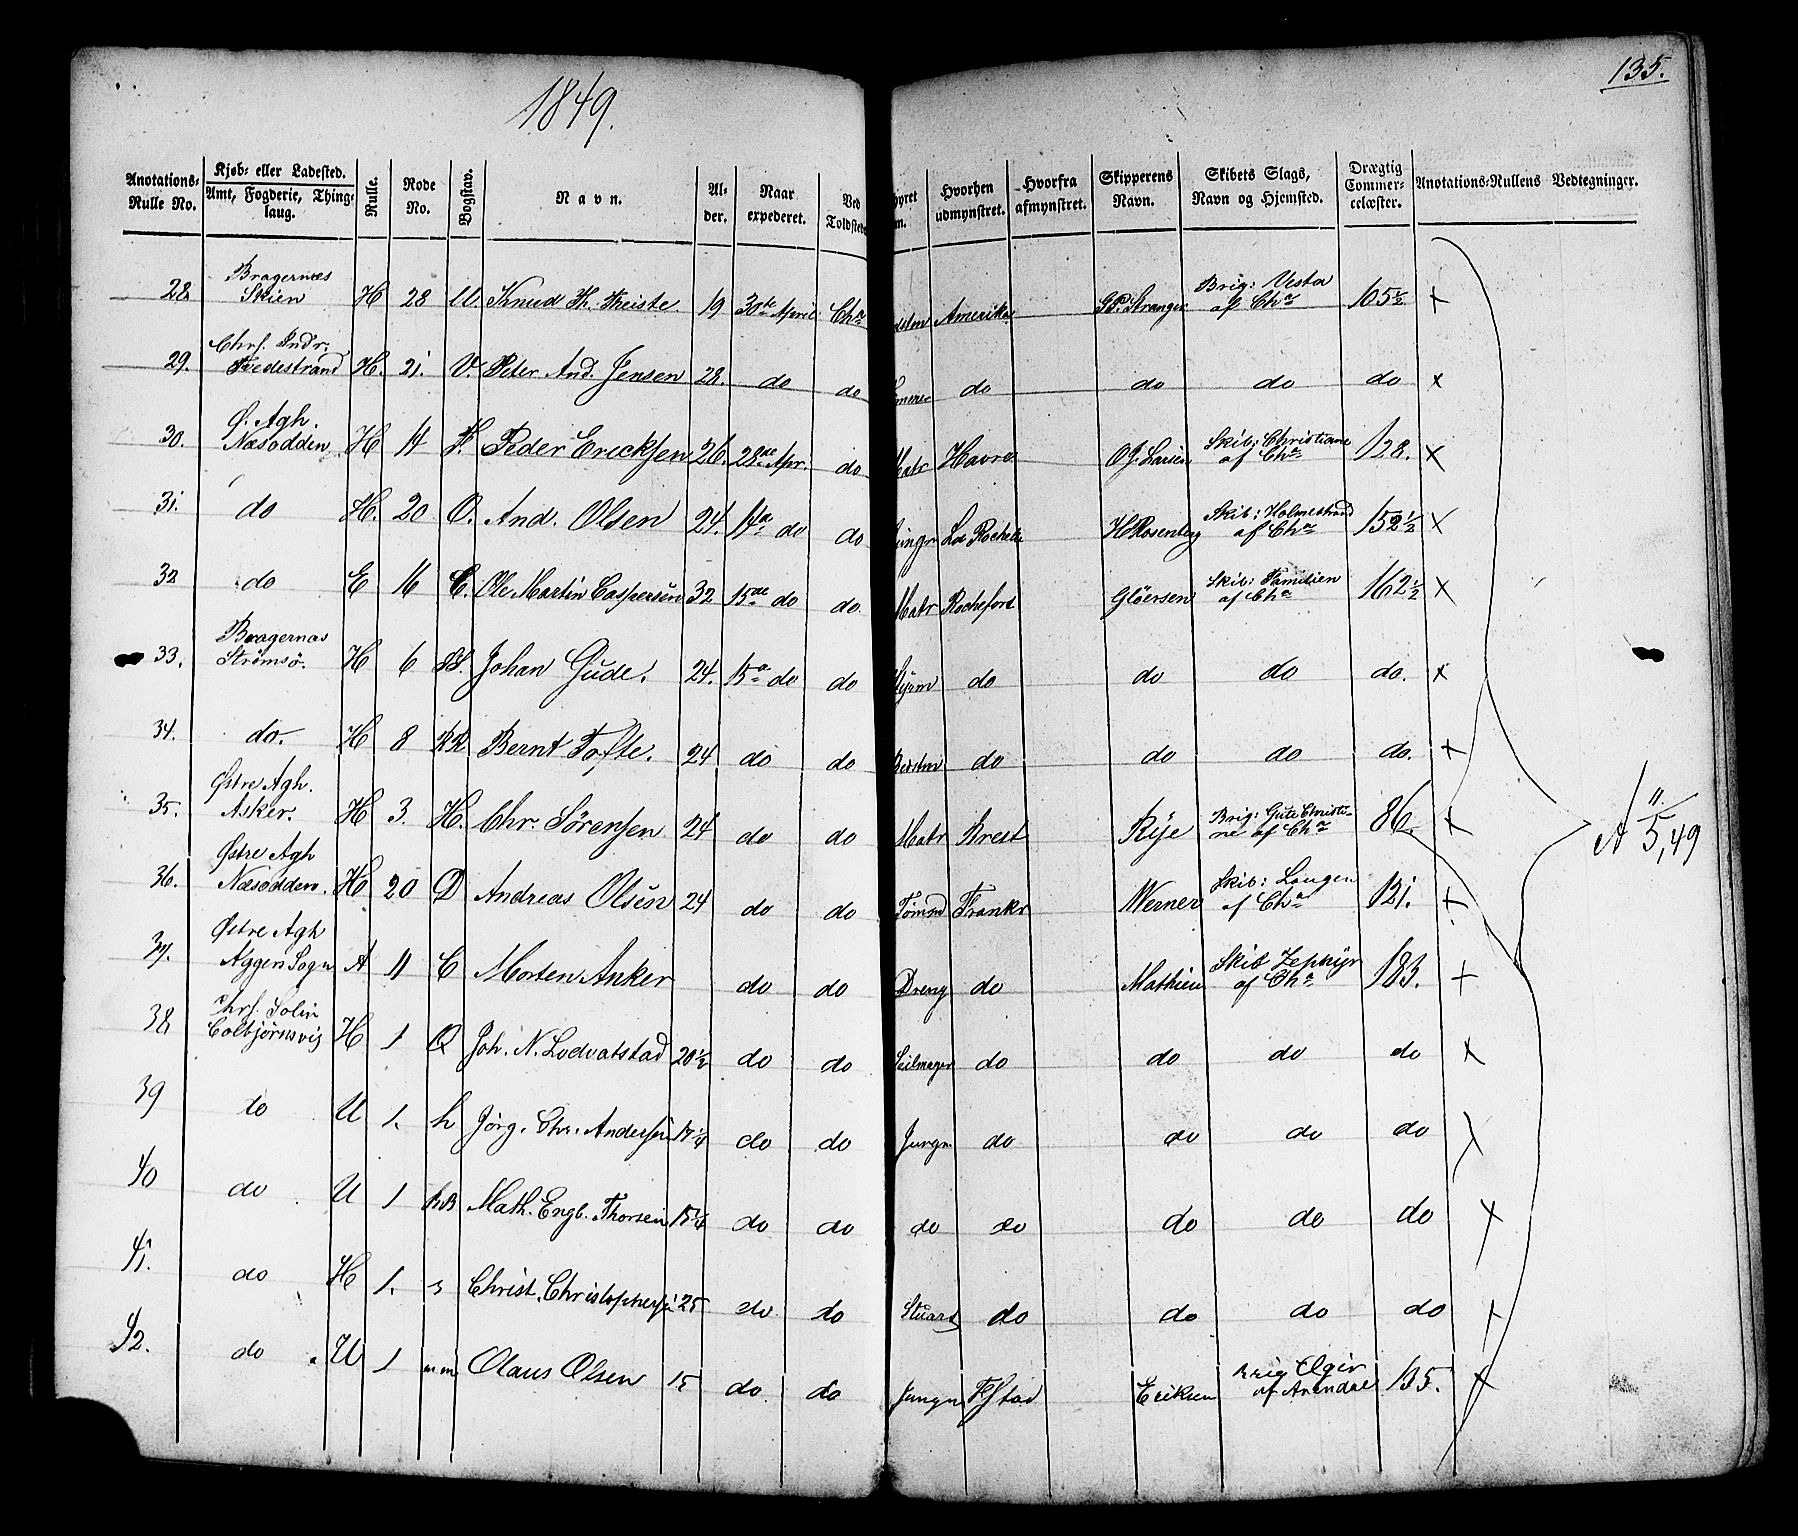 1849.
135.
Anotations-Rulle No. | Kjøb- eller Ladested. Amt, Fogderie, Thinglaug. | Rulle. | Rode No. | Bogstav. | Navn. | Alder. | Naar expederet. | Ved Toldsted | hyret m. | Hvorhen udmynstret. | Hvorfra afmynstret. | Skipperens Navn. | Skibets Slags, Navn og Hjemsted. | Drægtig Commercelæster. | Anotations-Rullens Vedtegninger.
28 | Bragernæs Skien | H | 28 | U. | Knud Th. Theiste. | 19 | 30te April | Cha | Amerika | Stranger | Brig: Vesta af Cha | 105½ | x
29. | Chrs. Indr. Tvedestrand | H. | 21. | V. | Peter And. Jensen | 28. | do | do | do | do | do | do | x
30. | Ø. Agh. Næsodden | H | 14 | F. | Peder Ericksen | 26. | 28de Apr. | do | Matr | Havre | O J. Larsen | Skib: Christiane af Cha | 128. | x
31. | do | H. | 20 | O. | And. Olsen | 24. | 14de do | do | Jungr | La Rochelle | H Rosenberg | Skib: Holmestrand af Cha | 152½ | x
32 | do | E | 16 | C. | Ole Martin Caspersen | 32 | 15de do | do. | Matr | Rochefort | Gløersen | Skib: Familien af Cha | 162½ | x
33. | Bragernæs Strømsø. | H | 6 | SS. | Johan Gude. | 24. | 15de do | do | Styrm | do | do | do | do. | x
34. | do. | H | 8 | RR | Bernt Tofte. | 24 | do | do | do | do | do | do. | x
35. | Østre Agh. Asker. | H | 3. | H. | Chr. Sørensen | 24 | do | do | Matr | Brest | Rye | Brig: Gute Christine af Cha | 86 | x
36. | Østre Agh Næsodden. | H | 20 | D | Andreas Olsen | 24 | do | do | Tømmd | Frankr | Werner | Skib: Laugen af Cha | 121. | x
37. | Østre Agh Aggers Sogn | A | 11 | C | Morten Anker | do | do | Dreng | do | Mathiesen | Skib Zephyr af Cha | 183. | x
38 | Chrs. Solin Colbjørnsvig | H | 1 | Q | Joh. N. Lodvatstad | 20½ | do | do | Seilmager | do | do | do | do | x
39 | do | U | 1. | h | Jörg. Chr. Andersen | 17¼ | do | do | Jungm | do | do | do | do | x
40 | do | U | 1 | BB | Math. Engb. Thorsen | 15¼ | do | do | do | do | do | do | do | x
41. | do | H | 1. | s | Christ. Christophersen | 25 | do | do | Stuard | do | do | do | do | x
42. | do | U | 1 | mm | Olaus Olsen | 15 | do | do | Jungm | Fstad | Eriksen | Brig Ægir af Arendal | 135. | x
A 11/5, 49